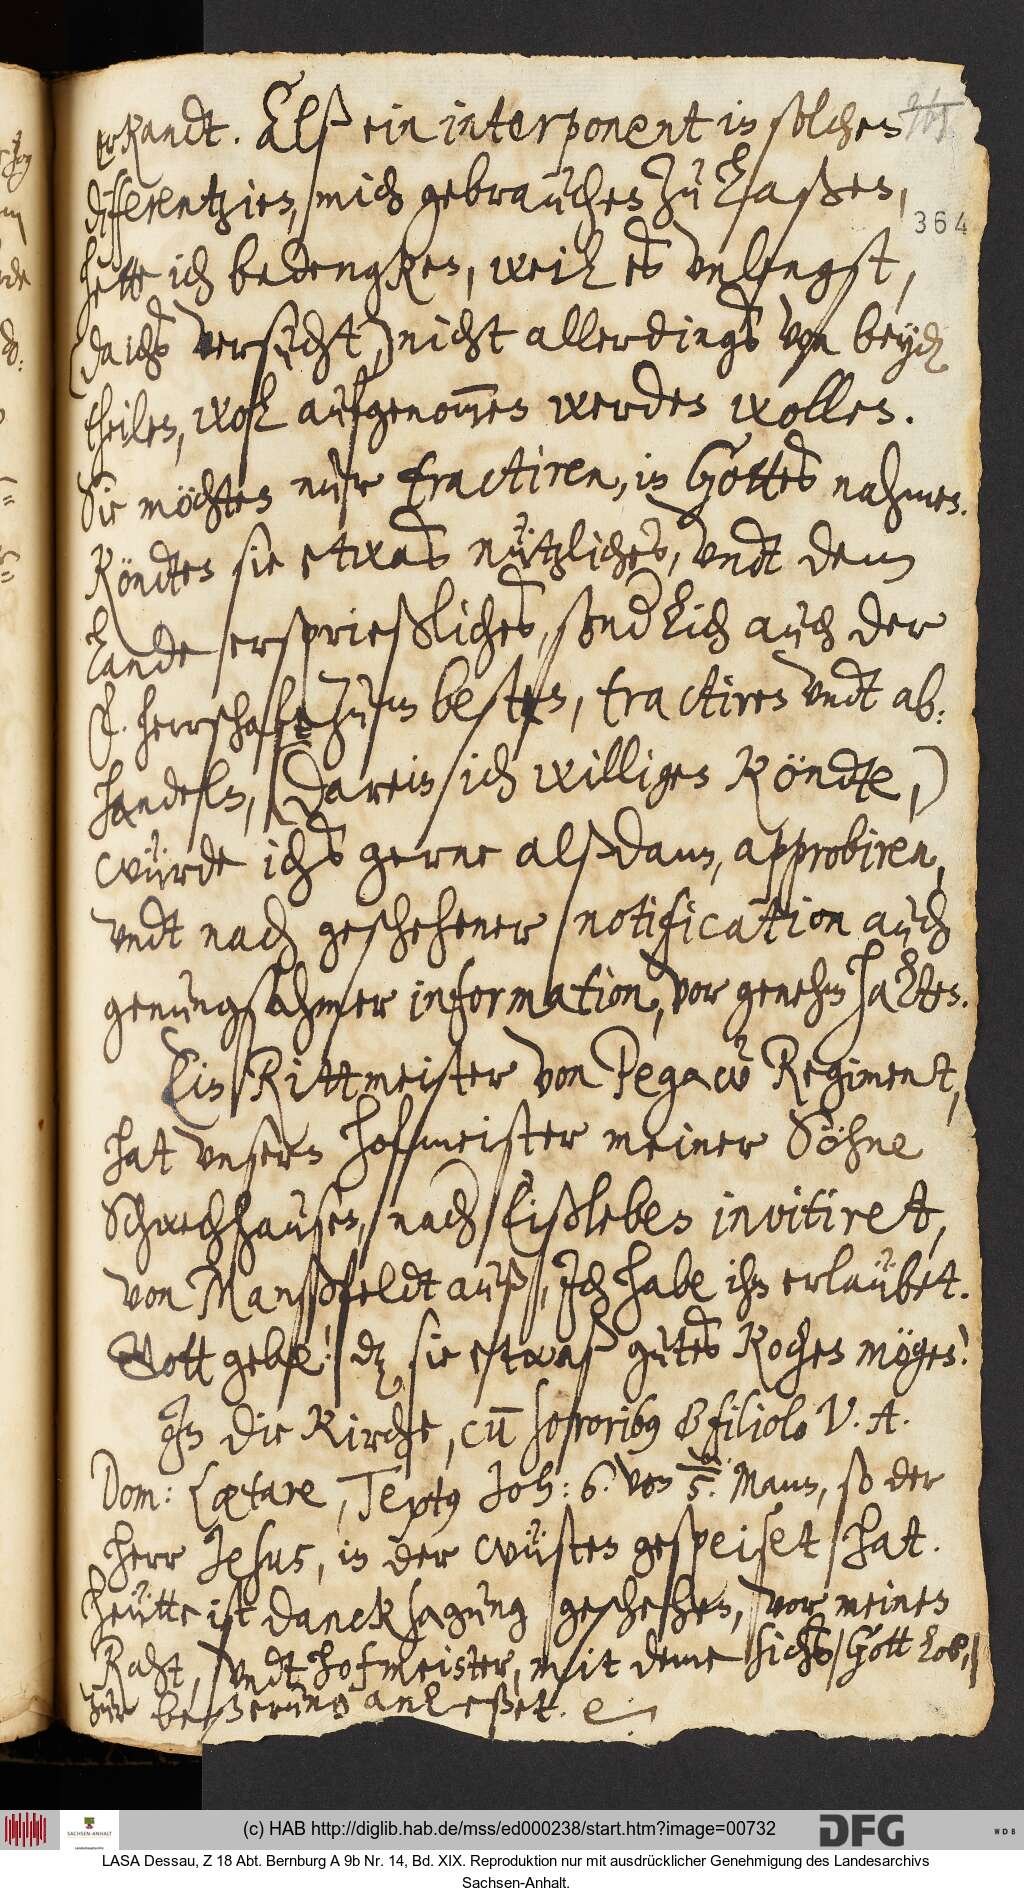 erkandt. Alß ein interponent in solchen
365
differentzien, mich gebrauchen zu laßen,
364
hette ich bedengken, weil es unlengst,
(da ichs versucht,) nicht allerdings von beyden
theilen, wol aufgenom̅en werden wollen.
Sie möchten nur tractiren, in Gottes nahmen.
Köndten sie etwas nützliches, undt dem
Lande ersprießliches, sondlich auch der
F. herrschaft zum besten, tractiren undt ab:
handeln, (darein ich willigen köndte,)
würde ichs gerne alßdann, approbiren,
undt nach geschehener notification auch
genungsahmer information, vor genehm halten.
Ein Rittmeister von Pegaw Regiment,
hat unsern hofmeister meiner Söhne
Schwechhausen, nach Eißleben invitiret,
von Manßfeldt auß, Ich habe ihn erlaübet.
Gott gebe! dz sie etwaß gutes kochen mögen!
In die kirche, cū sororibus & filiolo V. A.
Dom: Lætare, Textus Joh: 6. von 5. Mann, so der
herr Jesus, in der wüsten gespeiset hat.
heütte ist dancksagung geschehen, vor meinen
Raht, undt hofmeister, mit deme sichs, Gott lob,
zur beßerung anleßet.
(c) HAB http://diglib.hab.de/mss/ed000238/start.htm?image=00732
SACHSEN-ANHALT
DFG
WDB
LASA Dessau, Z 18 Abt. Bernburg A 9b Nr. 14, Bd. XIX. Reproduktion nur mit ausdrücklicher Genehmigung des Landesarchivs
Sachsen-Anhalt.